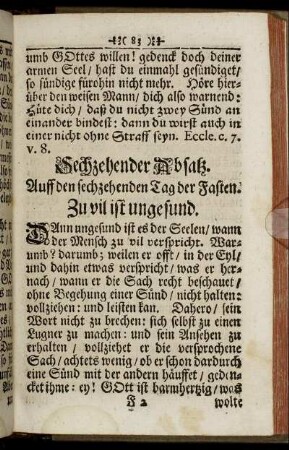 ( 83 )
umb GOttes willen! gedenck doch deiner
armen Seel / hast du einmahl gesündiget /
so sündige fürohin nicht mehr. Höre hier-
über den weisen Mann / dich also warnend:
Hüte dich / daß du nicht zwey Sünd an
einander bindest: dann du wirst auch in
einer nicht ohne Straff seyn. Eccle. c. 7.
v. 8.
Sechzehender Absatz.
Auff den sechzehenden Tag der Fasten.
Zu vil ist ungesund.
DAnn ungesund ist es der Seelen / wann
der Mensch zu vil verspricht. War-
umb? darumb; weilen er offt / in der Eyl /
und dahin etwas verspricht / was er her-
nach / wann er die Sach recht beschauet /
ohne Begehung einer Sünd / nicht halten:
vollziehen: und leisten kan. Dahero / sein
Wort nicht zu brechen: sich selbst zu einen
Lugner zu machen: und sein Ansehen zu
erhalten / vollziehet er die versprochene
Sach / achtets wenig / ob er schon dardurch
eine Sünd mit der andern häuffet / geden-
cket ihme: ey! GOtt ist barmhertzig / was
F 2 wolte